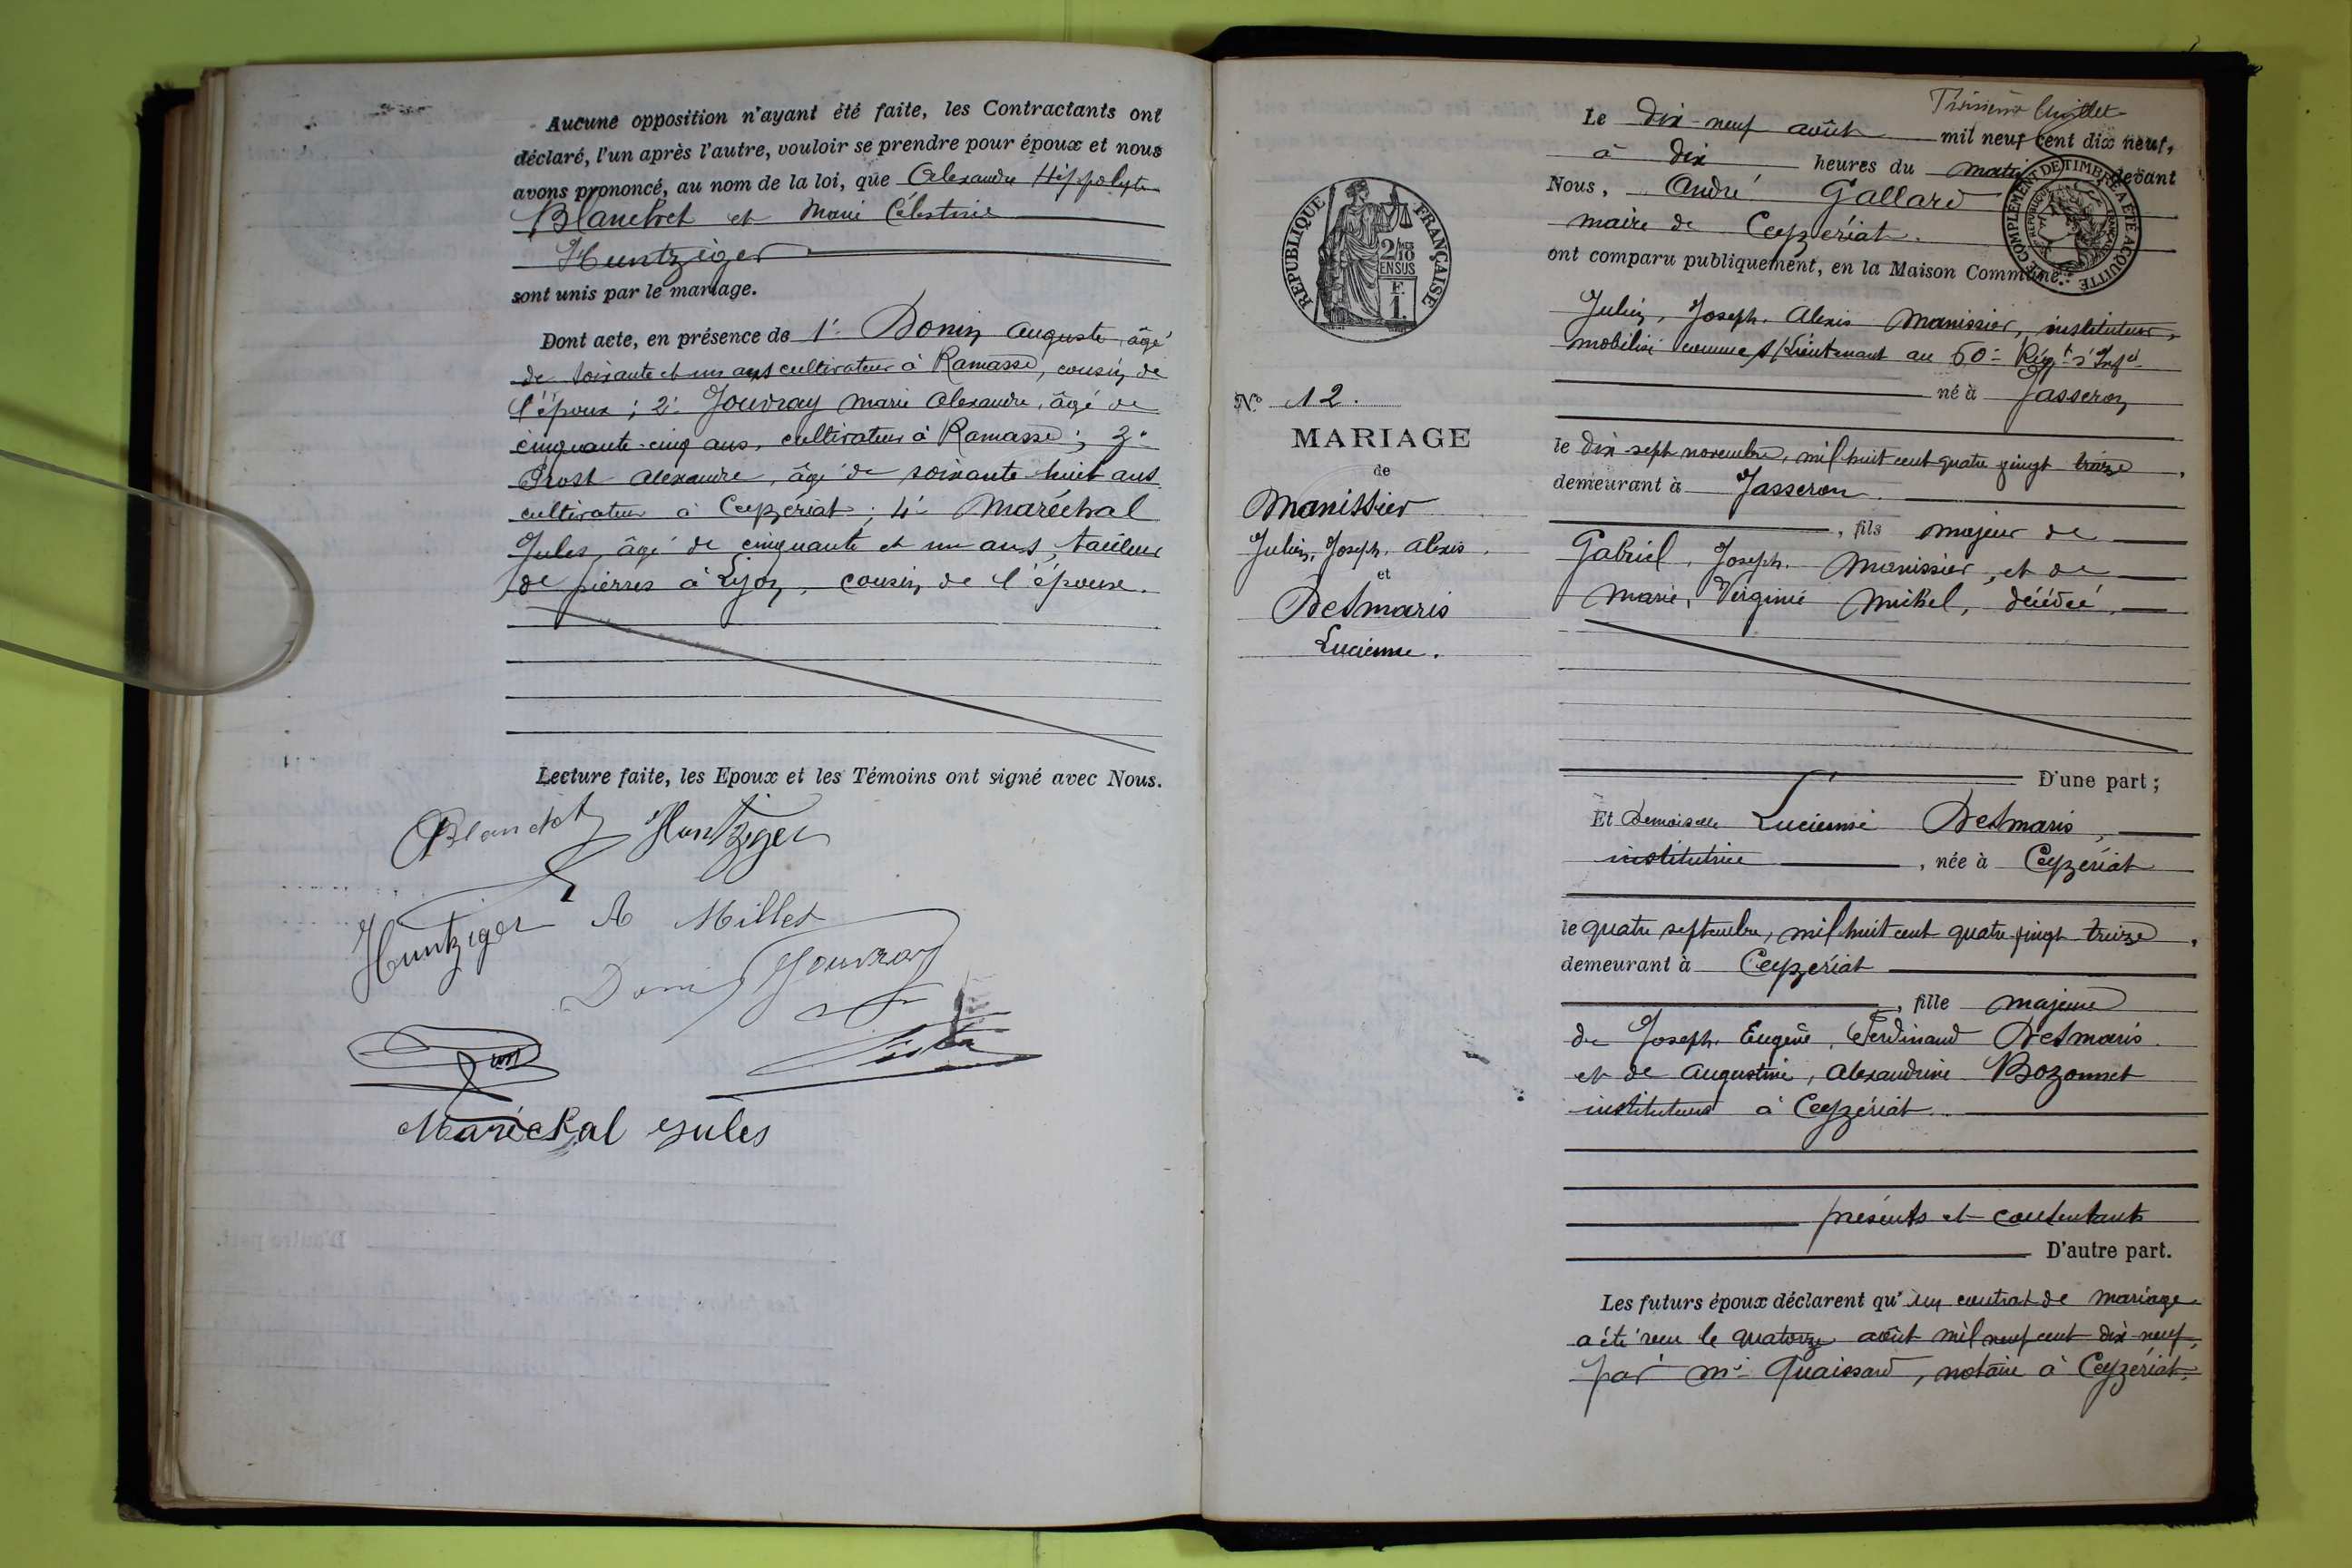 Aucune opposition n'ayant été faite, les Contractants ont
déclaré, l'un après l'autre, vouloir se prendre pour époux et nous
avons prononcé, au nom de la loi, que Alexandre Hippolyte
Blanchet et Marie Célestine
Huntziger
sont unis par le mariage.
Dont acte, en présence de 1° Donin Auguste, âgé
de soixante et un ans cultivateur à Ramasse, cousin de
l'époux ; 2° Jouvray Marie Alexandre, âgé de
cinquante-cinq ans, cultivateur à Ramasse ; 3°
Prost Alexandre, âgé de soixante huit ans
cultivateur à Ceyzériat ; 4° Maréchal
Jules, âgé de cinquante et un ans, tailleur
de pierres à Lyon, cousin de l'épouse.
Lecture faite, les Epoux et les Témoins ont signé avec Nous.
Blanchet Huntziger
Huntziger A Millet
Donin Jouvray
Maréchal Jules
Troisième feuillet
Le dix-neuf août mil neuf cent dix neuf,
à dix heures du matin devant
Nous, André Gallard
maire de Ceyzériat.
ont comparu publiquement, en la Maison Commune :
COMPLÉMENT DE TIMBRE A ÉTÉ ACQUITTÉ
RÉPUBLIQUE FRANÇAISE
Julien, Joseph, Alexis Manissier, instituteur,
mobilisé comme s/Lieutenant au 60° Régt d'Infie
né à Jasseron
le dix-sept novembre, mil huit cent quatre vingt treize,
demeurant à Jasseron.
, fils majeur de
Gabriel, Joseph Manissier, et de
Marie, Virginie Michel, décédée,
D'une part ;
RÉPUBLIQUE FRANÇAISE
2/10es
EN SUS
F.
1.
N° 12.
MARIAGE
de
Manissier
Julien, Joseph, Alexis.
et
Desmaris
Lucienne.
Et Demoiselle Lucienne Desmaris,
institutrice, née à Ceyzériat
le quatre septembre, mil huit cent quatre vingt treize,
demeurant à Ceyzériat
, fille majeure
de Joseph, Eugène, Ferdinand Desmaris
et de Augustine, Alexandrine Bozonnet
instituteurs à Ceyzériat.
présents et consentants
D'autre part.
Les futurs époux déclarent qu'un contrat de mariage
a été reçu le quatorze août mil neuf cent dix-neuf,
par Me Quaissard, notaire à Ceyzériat.